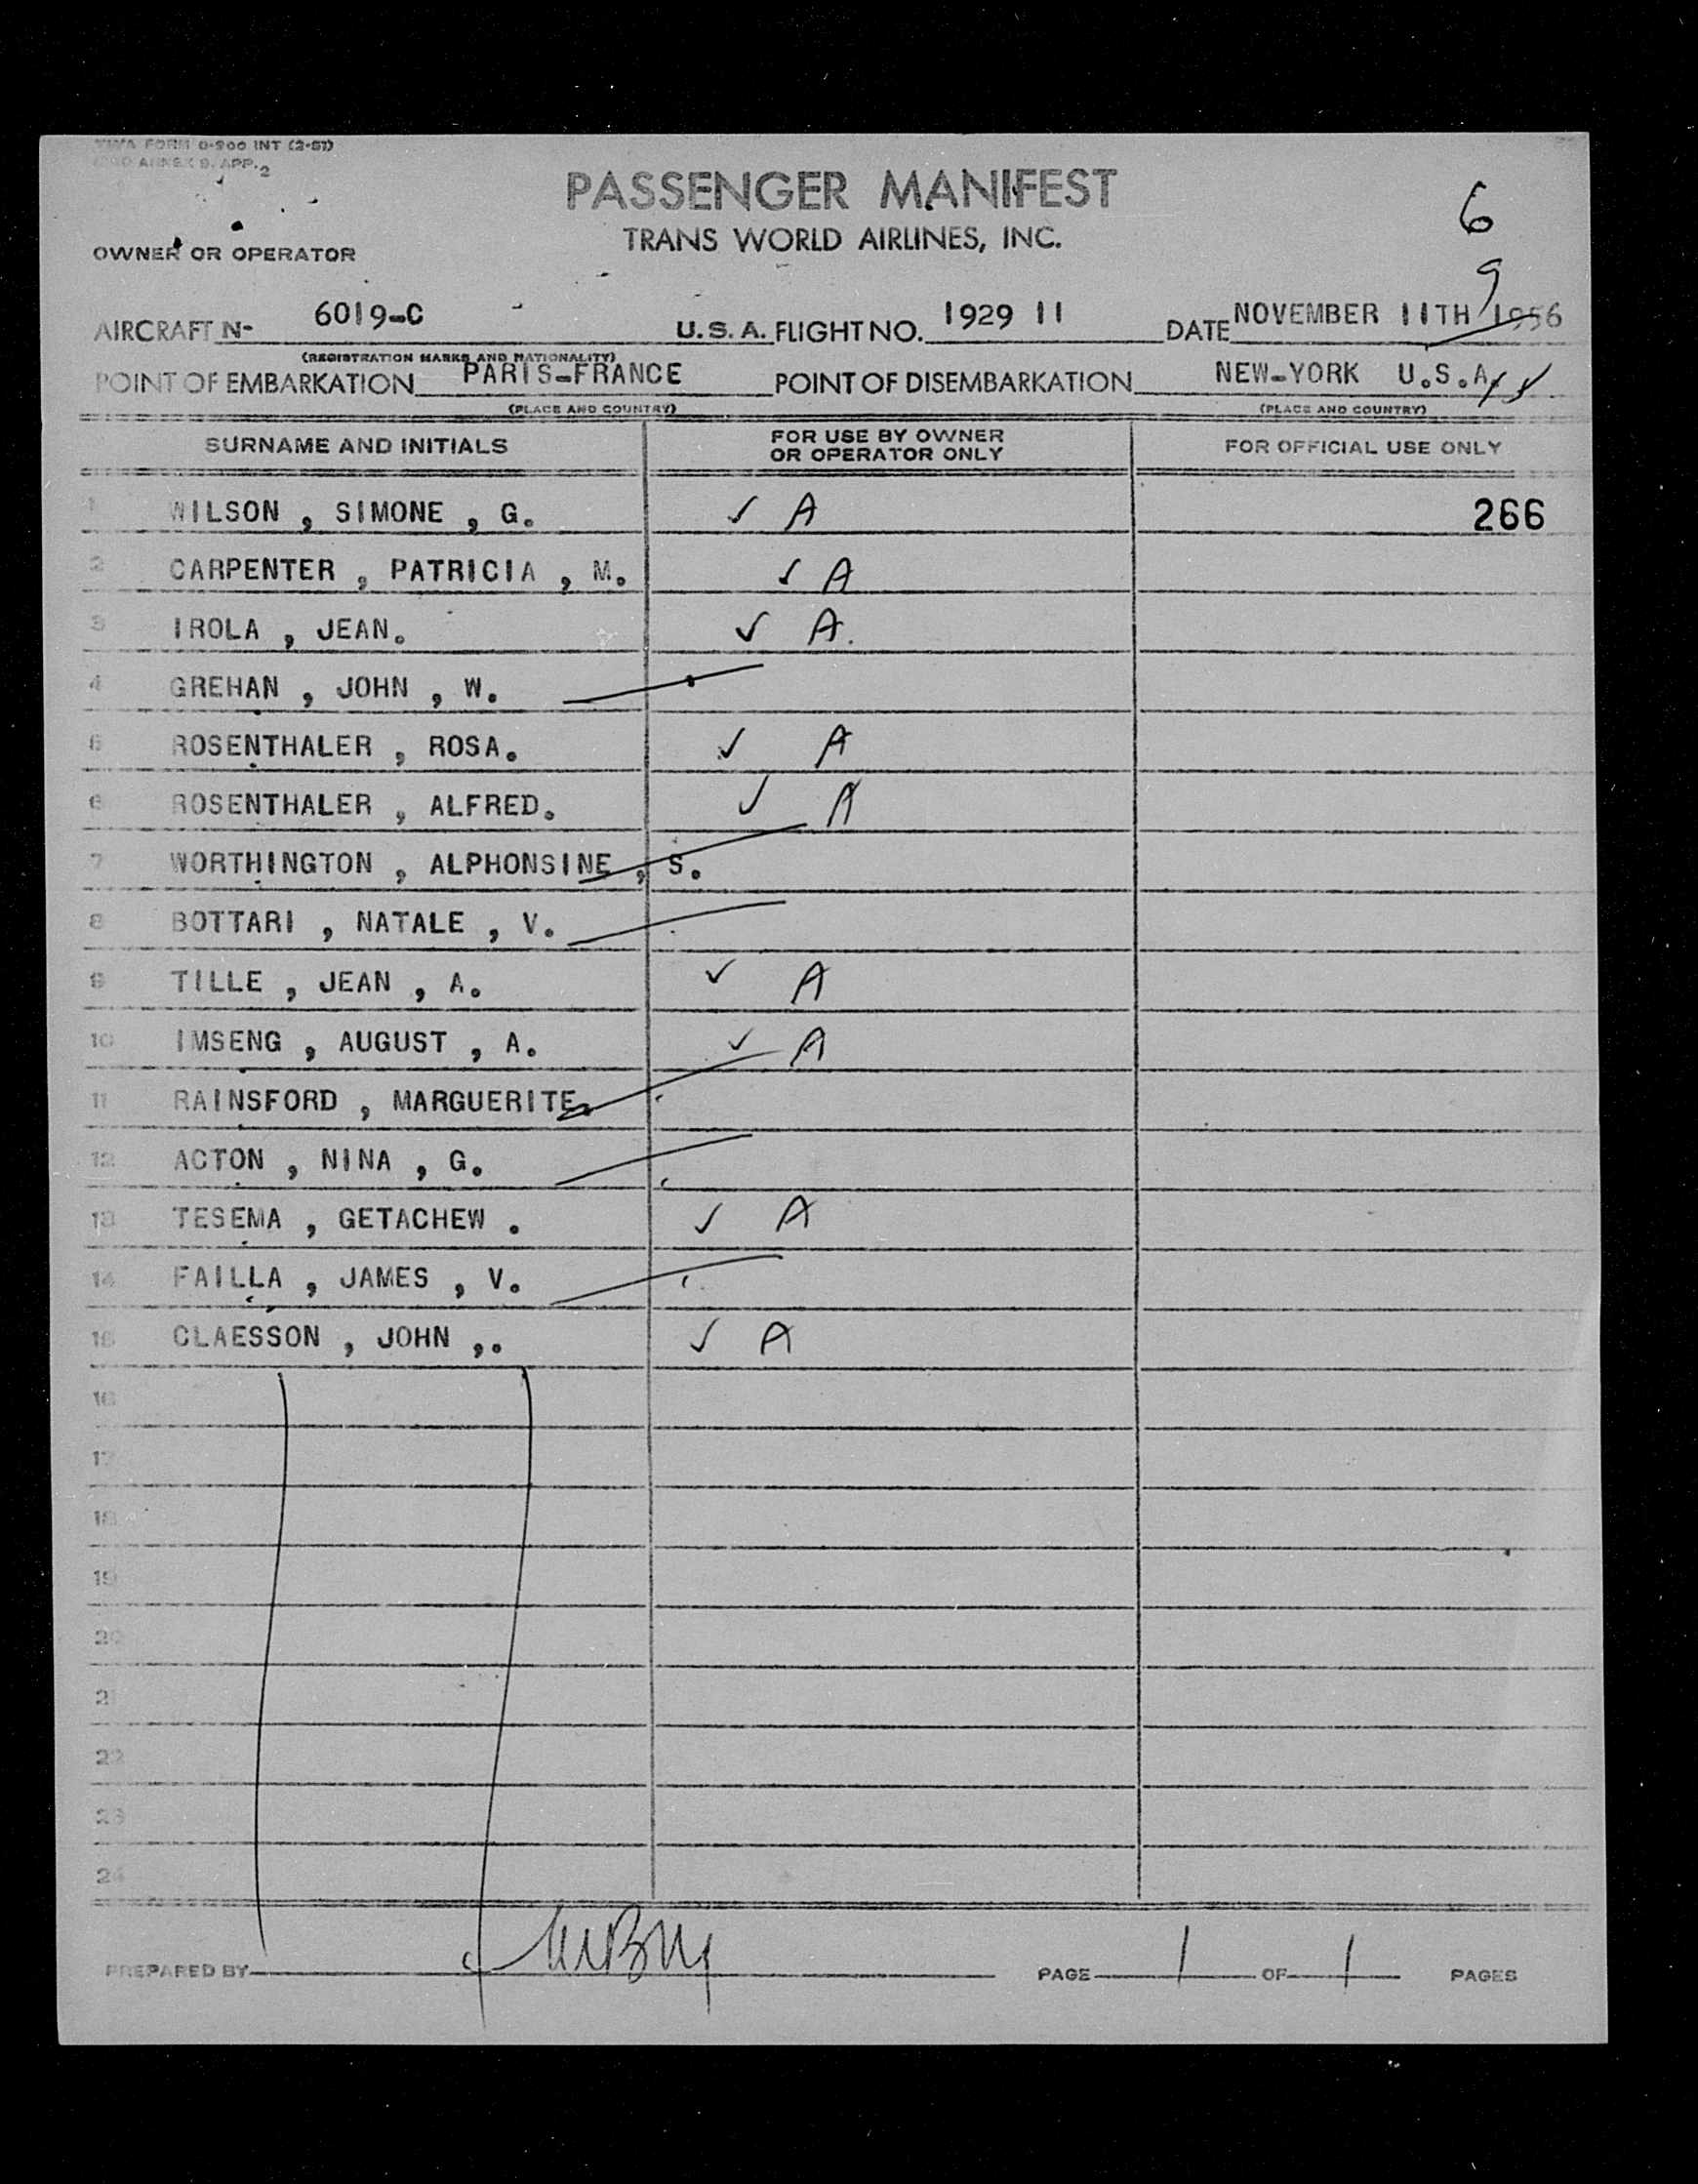 TWA FORM 0-900 INT (2-51)
ANNEX 9, APP. 2
PASSENGER MANIFEST
6
TRANS WORLD AIRLINES, INC.
OWNER OR OPERATOR
9
AIRCRAFT N- 6019-C U.S.A. FLIGHT NO. 1929 11 DATE NOVEMBER 11TH 1956
(REGISTRATION MARKS AND NATIONALITY)
POINT OF EMBARKATION PARIS-FRANCE POINT OF DISEMBARKATION NEW-YORK U.S.A.
(PLACE AND COUNTRY) (PLACE AND COUNTRY)
SURNAME AND INITIALS FOR USE BY OWNER OR OPERATOR ONLY FOR OFFICIAL USE ONLY
1 WILSON , SIMONE , G. ✓ A 266
2 CARPENTER , PATRICIA , M. ✓ A
3 IROLA , JEAN. ✓ A.
4 GREHAN , JOHN , W.
5 ROSENTHALER , ROSA. ✓ A
6 ROSENTHALER , ALFRED. ✓ A
7 WORTHINGTON , ALPHONSINE , S.
8 BOTTARI , NATALE , V.
9 TILLE , JEAN , A. ✓ A
10 IMSENG , AUGUST , A. ✓ A
11 RAINSFORD , MARGUERITE.
12 ACTON , NINA , G.
13 TESEMA , GETACHEW . ✓ A
14 FAILLA , JAMES , V.
15 CLAESSON , JOHN ,. ✓ A
16
17
18
19
20
21
22
23
24
PREPARED BY PAGE 1 OF 1 PAGES